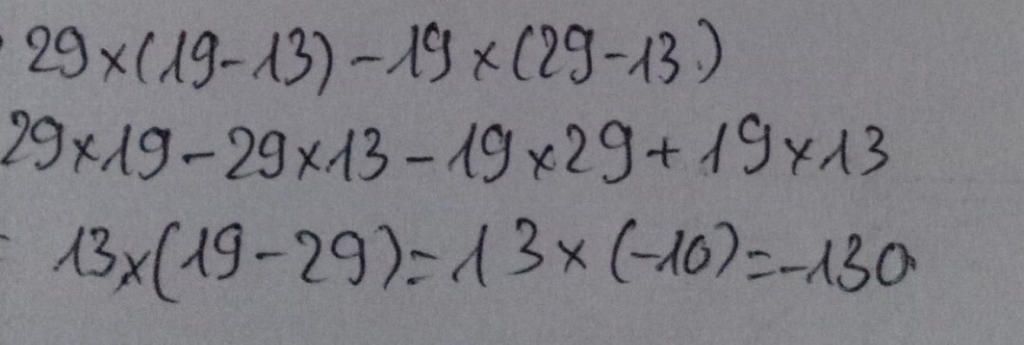 29×(19-13)-19×(29-13)
29×19-29×13-19×29+19×13
= 13×(19-29)=13×(-10)=-130